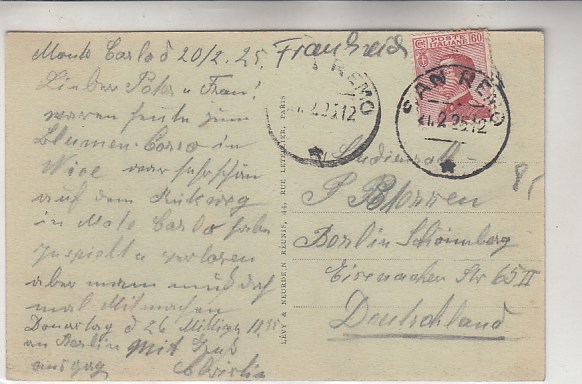 Monte Carlo d 20/2. 25. Frankreich
Lieber Peter u Frau!
waren heute zum
Blumen Corso in
Nice war sehr schön
auf dem Rückweg
in Mote Carlo habe
gespielt u verloren
aber mann muß doch
mal Mitmachen
Donnrstag d 26 Mittags
an Berlin Mit Gruß
POSTE ITALIANE
60
SAN REMO
21.2.25.12
REMO
2.25.12
LÉVY & NEURDEIN RÉUNIS, 44, RUE LETELLIER, PARIS
Studienrath
P
Berlin Schöneberg
Eisenacher Str 65 II
Deutschland